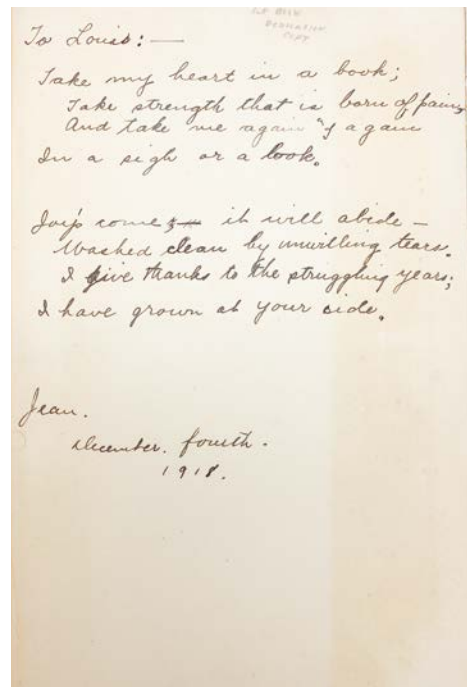 1st BOOK
DEDICATION
COPY
To Louis:—
Take my heart in a book;
Take strength that is born of pain,
And take me again & again
In a sigh or a look.
Joy's come; it will abide —
Washed clean by unwilling tears.
I give thanks to the struggling years;
I have grown at your side.
Jean.
December. fourth.
1918.